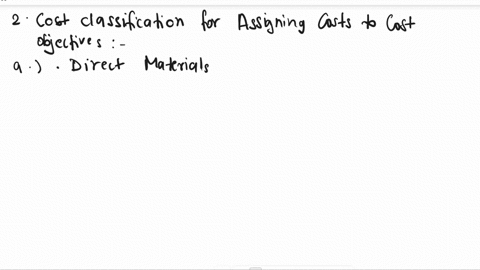 2. Cost classification for Assigning Costs to Cost
objectives :-
a.) . Direct Materials